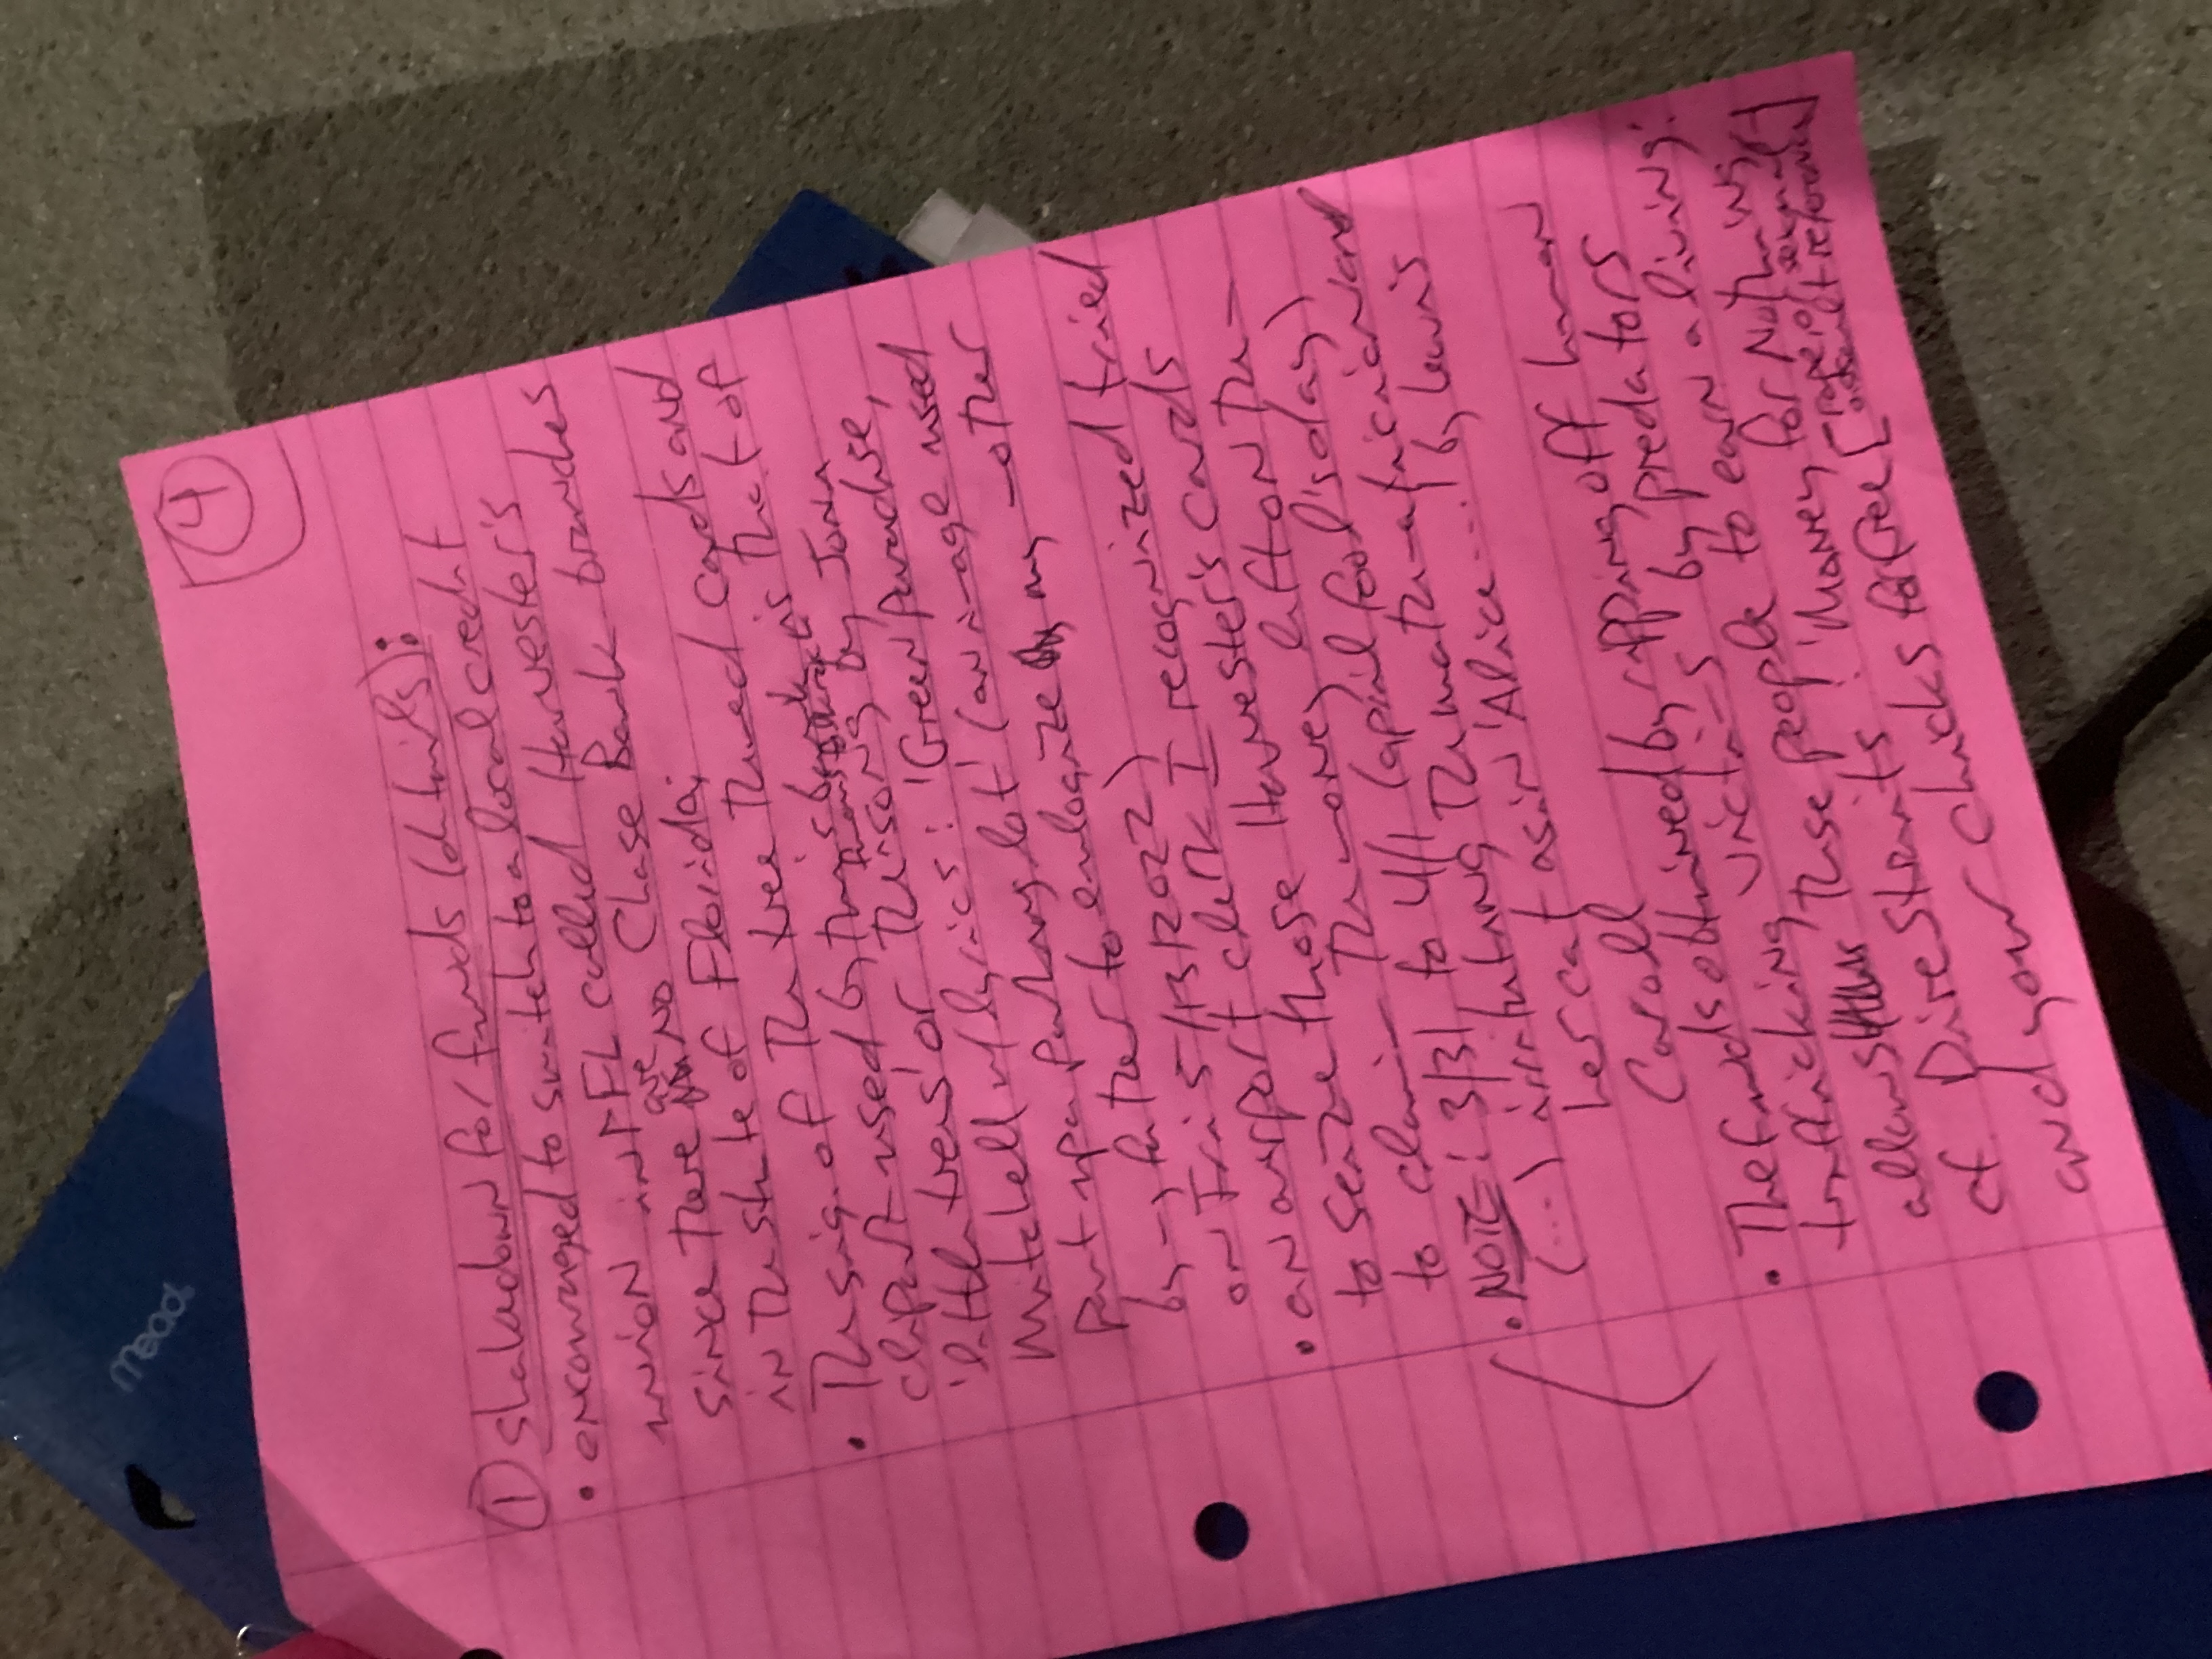 mead
4
① Shakedown for funds (details):
• encouraged to switch to a local credit
union in FL called Harvester's
since there are no Chase Bank branches
in the state of Florida;
• The sign of the tree themed cards and
clipart used by this bank is that of
'little trees' or the song by Joni
Mitchell w/ lyrics: 'Green Paradise,
put up a parking lot' (an image used
by my father to eulogize my mother
on Fri 5/13/2022)
• an airport clerk I recognized tried
to seize those Harvester's cards
to claim the money left on them
• NOTE: 3/31 to 4/1 (april fool's day)
(...) irritating the mathematician and
her cat as in 'Alice...' by Lewis
Caroll
• The funds obtained by ripping off human
trafficking victims by predators
allows these people to earn a living:
cf. Dire Straits: 'Money for Nothing
and your chicks for free [rape or sexual
assault reference]